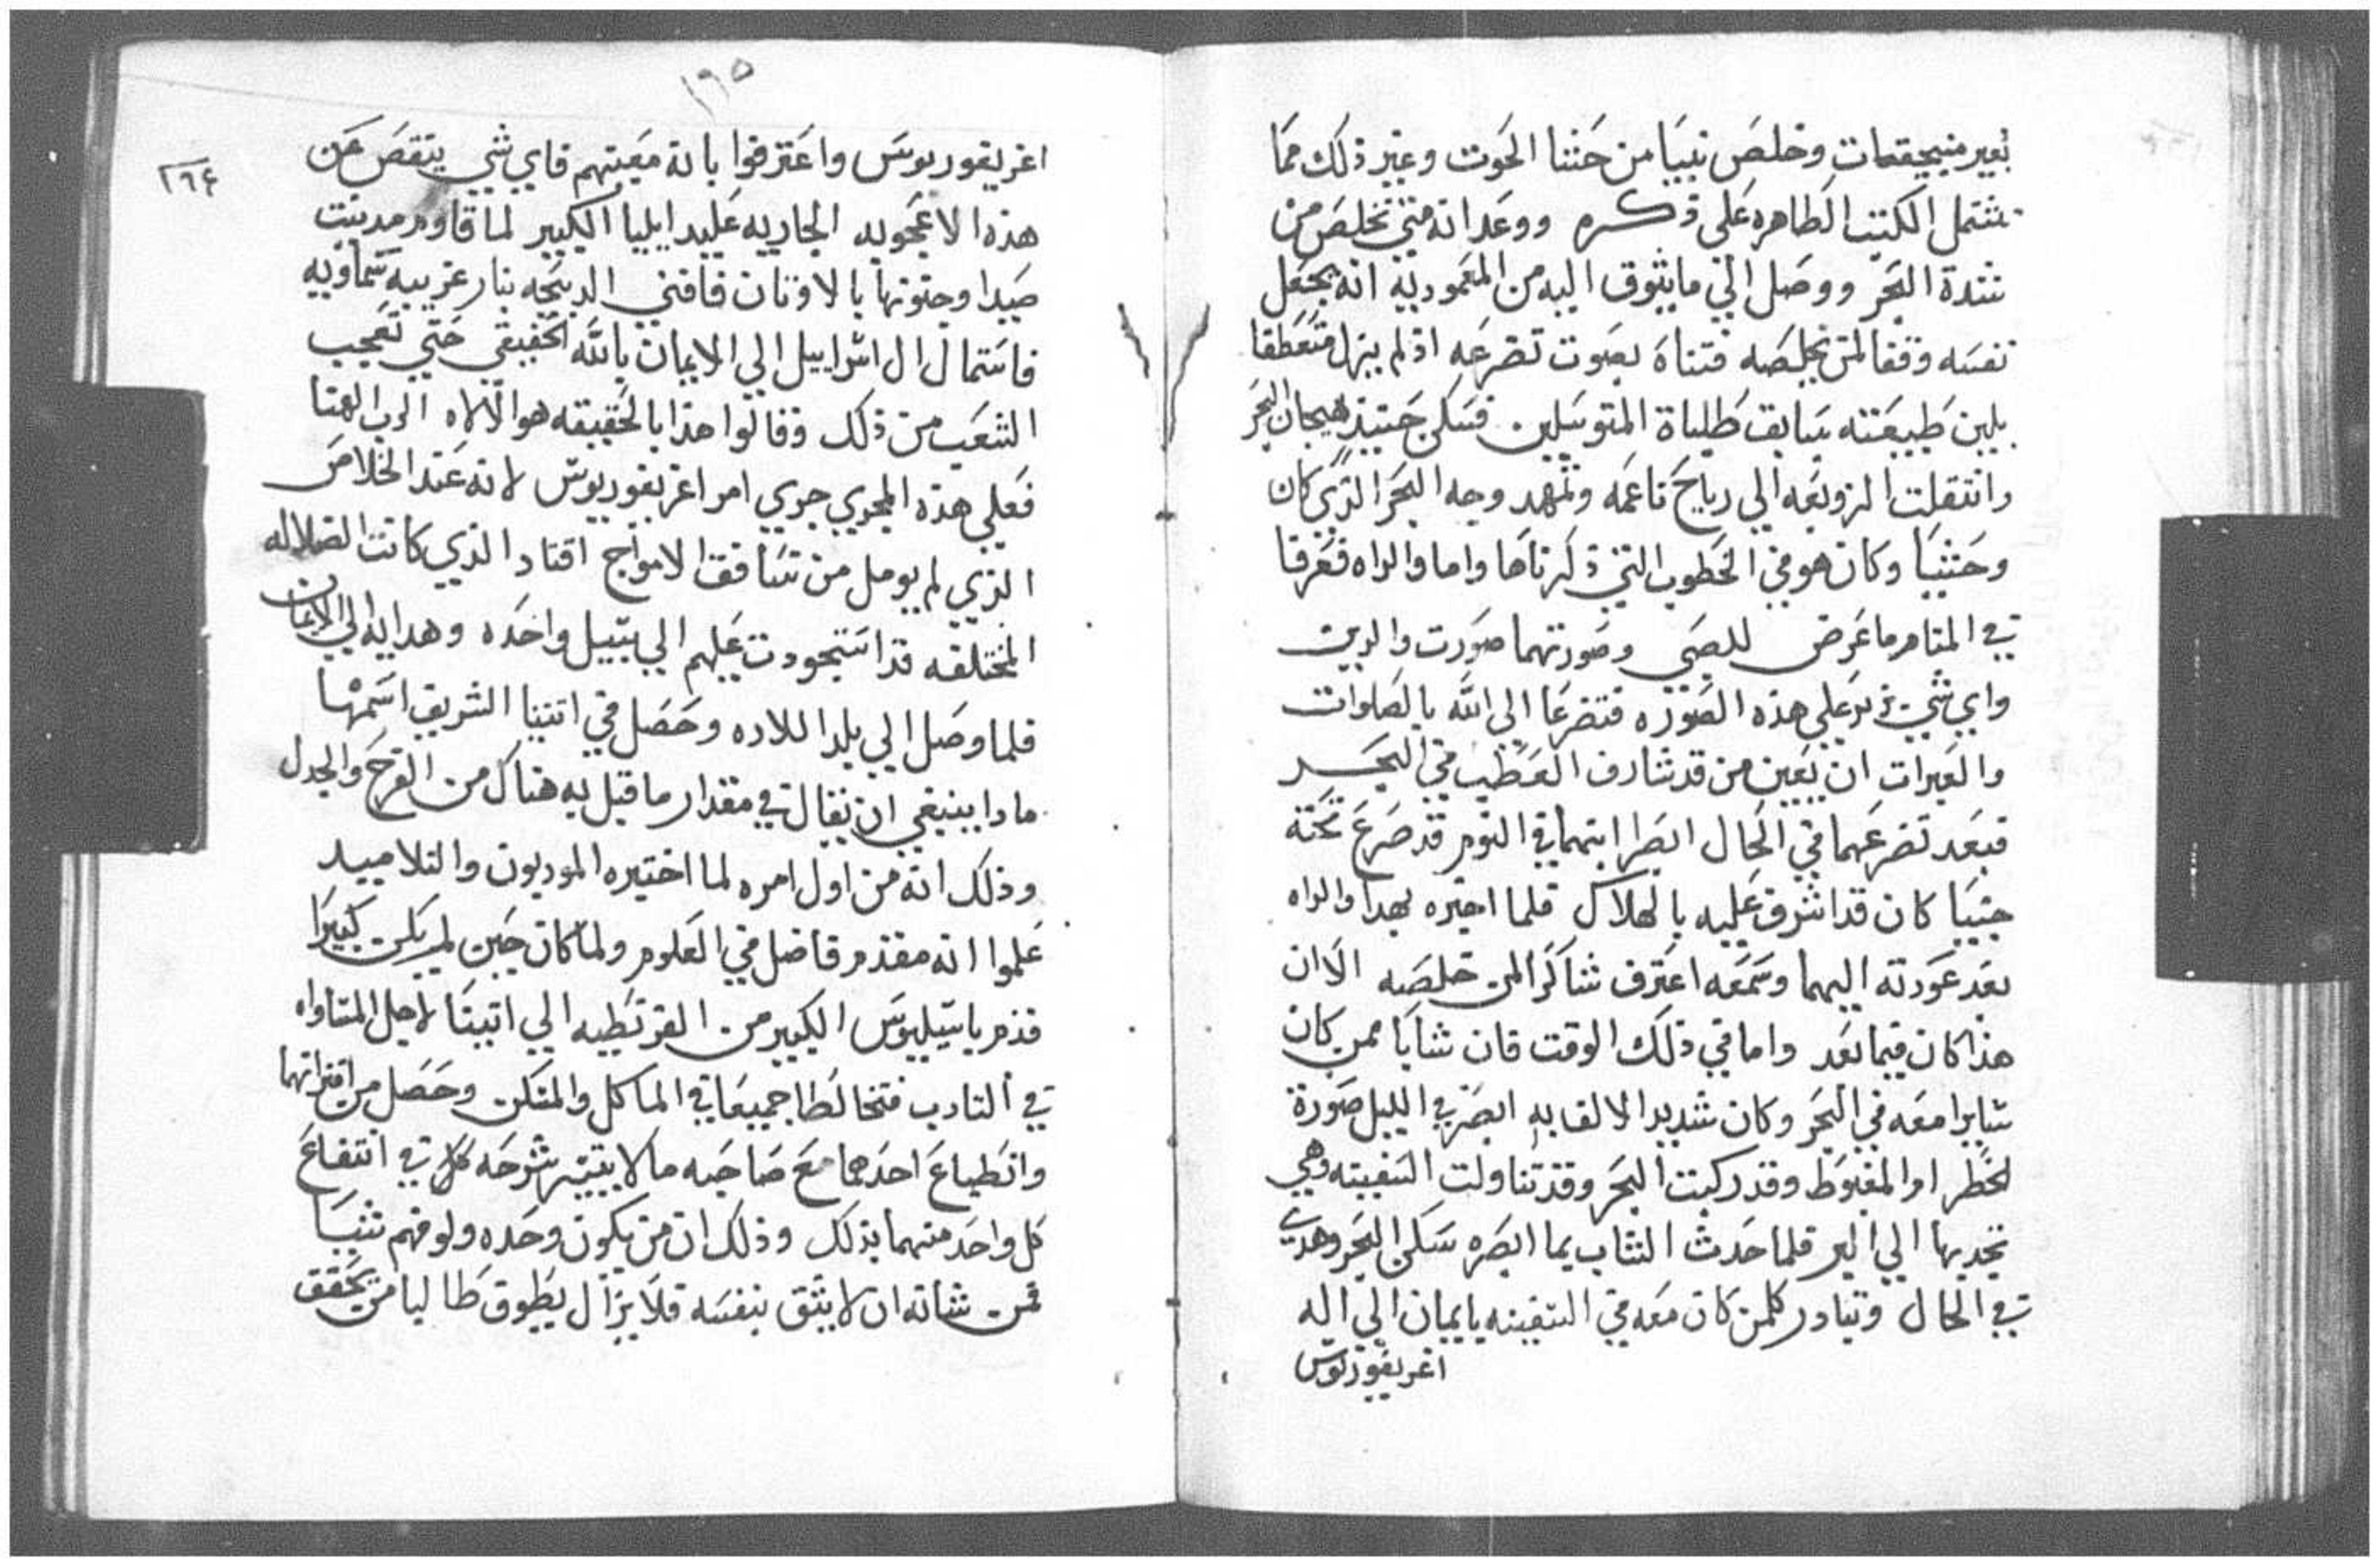 بغير منيجيقعات وخلص نبيا من حشا الحوت وغير ذلك مما
تشتمل الكتب الطاهره على ذكره ووعد انه متي تخلص من
شدة البحر ووصل الي ما يتوق اليه من المعموديه انه يجعل
نفسه وقفا لمن يخلصه فتناه بصوت تضرعه اذ لم يزل متعطفا
بلين طبيعته سابق طلباة المتوسلين فسكن حينيذ هيجان البحر
وانتقلت الزوبعه الي رياح ناعمه وتمهد وجه البحر الذي كان
وحشيا وكان هو في الخطوب التي ذكرناها واما والداه فعرفا
في المنام ما عرض للصبي وصورتهما صورت والدين
واي شي ترد علي هذه الصوره فتضرعا الي الله بالصلوات
والعبرات ان يعين من قد شارف العطب في البحر
فبعد تضرعهما في الحال ابصرا ابنهما في النوم قد صرع تحته
جنيا كان قد اشرف عليه بالهلاك فلما اخبره بهدا والداه
بعد عودته اليهما وسمعه اعترف شاكرا لمن خلصه الا ان
هذا كان فيما بعد واما في ذلك الوقت فان شابا ممن كان
سايرا معه في البحر وكان شديدا الالفا به ابصر في الليل صورة
لخطر ام المغبوط وقد ركبت البحر وقد تناولت السفينه وهي
تجديها الي البر فلما حدث الشاب بما ابصره سكن البحر وهدي
في الحال وتبادر كلمن كان معه في السفينه بايمان الي اله
اغريغوريوس
١٦٥
٢٦٤
اغريغوريوس واعترفوا بانه معينهم فاي شي ينقص عن
هذه الاعجوبه الجاريه عليد ايليا الكبير لما قاوم مدينت
صيدا وجنونها بالاوثان فافني الدبيحه بنار غريبه سماويه
فاستمال ال اسراييل الي الايمان بالله الحقيقي حتي تعجب
الشعب من ذلك وقالوا هذا بالحقيقه هو الالاه الرب الهنا
فعلي هذه المجري جري امر اغريغوريوس لانه عند الخلاص
الذي لم يومل من تسافق الامواج اقتاد الذي كانت الضلاله
المختلفه قد استجودت عليهم الي سبيل واحده وهدايه الي الايمان
فلما وصل الي بلد اللاده وحصل في اتينا الشريف اسمها
مادا ينبغي ان يقال في مقدار ما قبل به هناك من الفرح والجدل
وذلك انه من اول امره لما اختبره المودبون والتلاميد
علموا انه مقدم فاضل في العلوم ولما كان حين لم يكن كبيرا
قدم باسيليوس الكبير من القرنطيه الي اتينا لاجل المتاواه
في التادب فتخالطا جميعا في الماكل والمسكن وحصل من اقترانهما
وانطباع احدهما مع صاحبه ما لا يتيسر شرحه كلا في انتفاع
كل واحد منهما بذلك وذلك ان من يكون وحده ولو فهم شيا
فمن شانه ان لا يثق بنفسه فلا يزال يطوق طالبا من يحقق